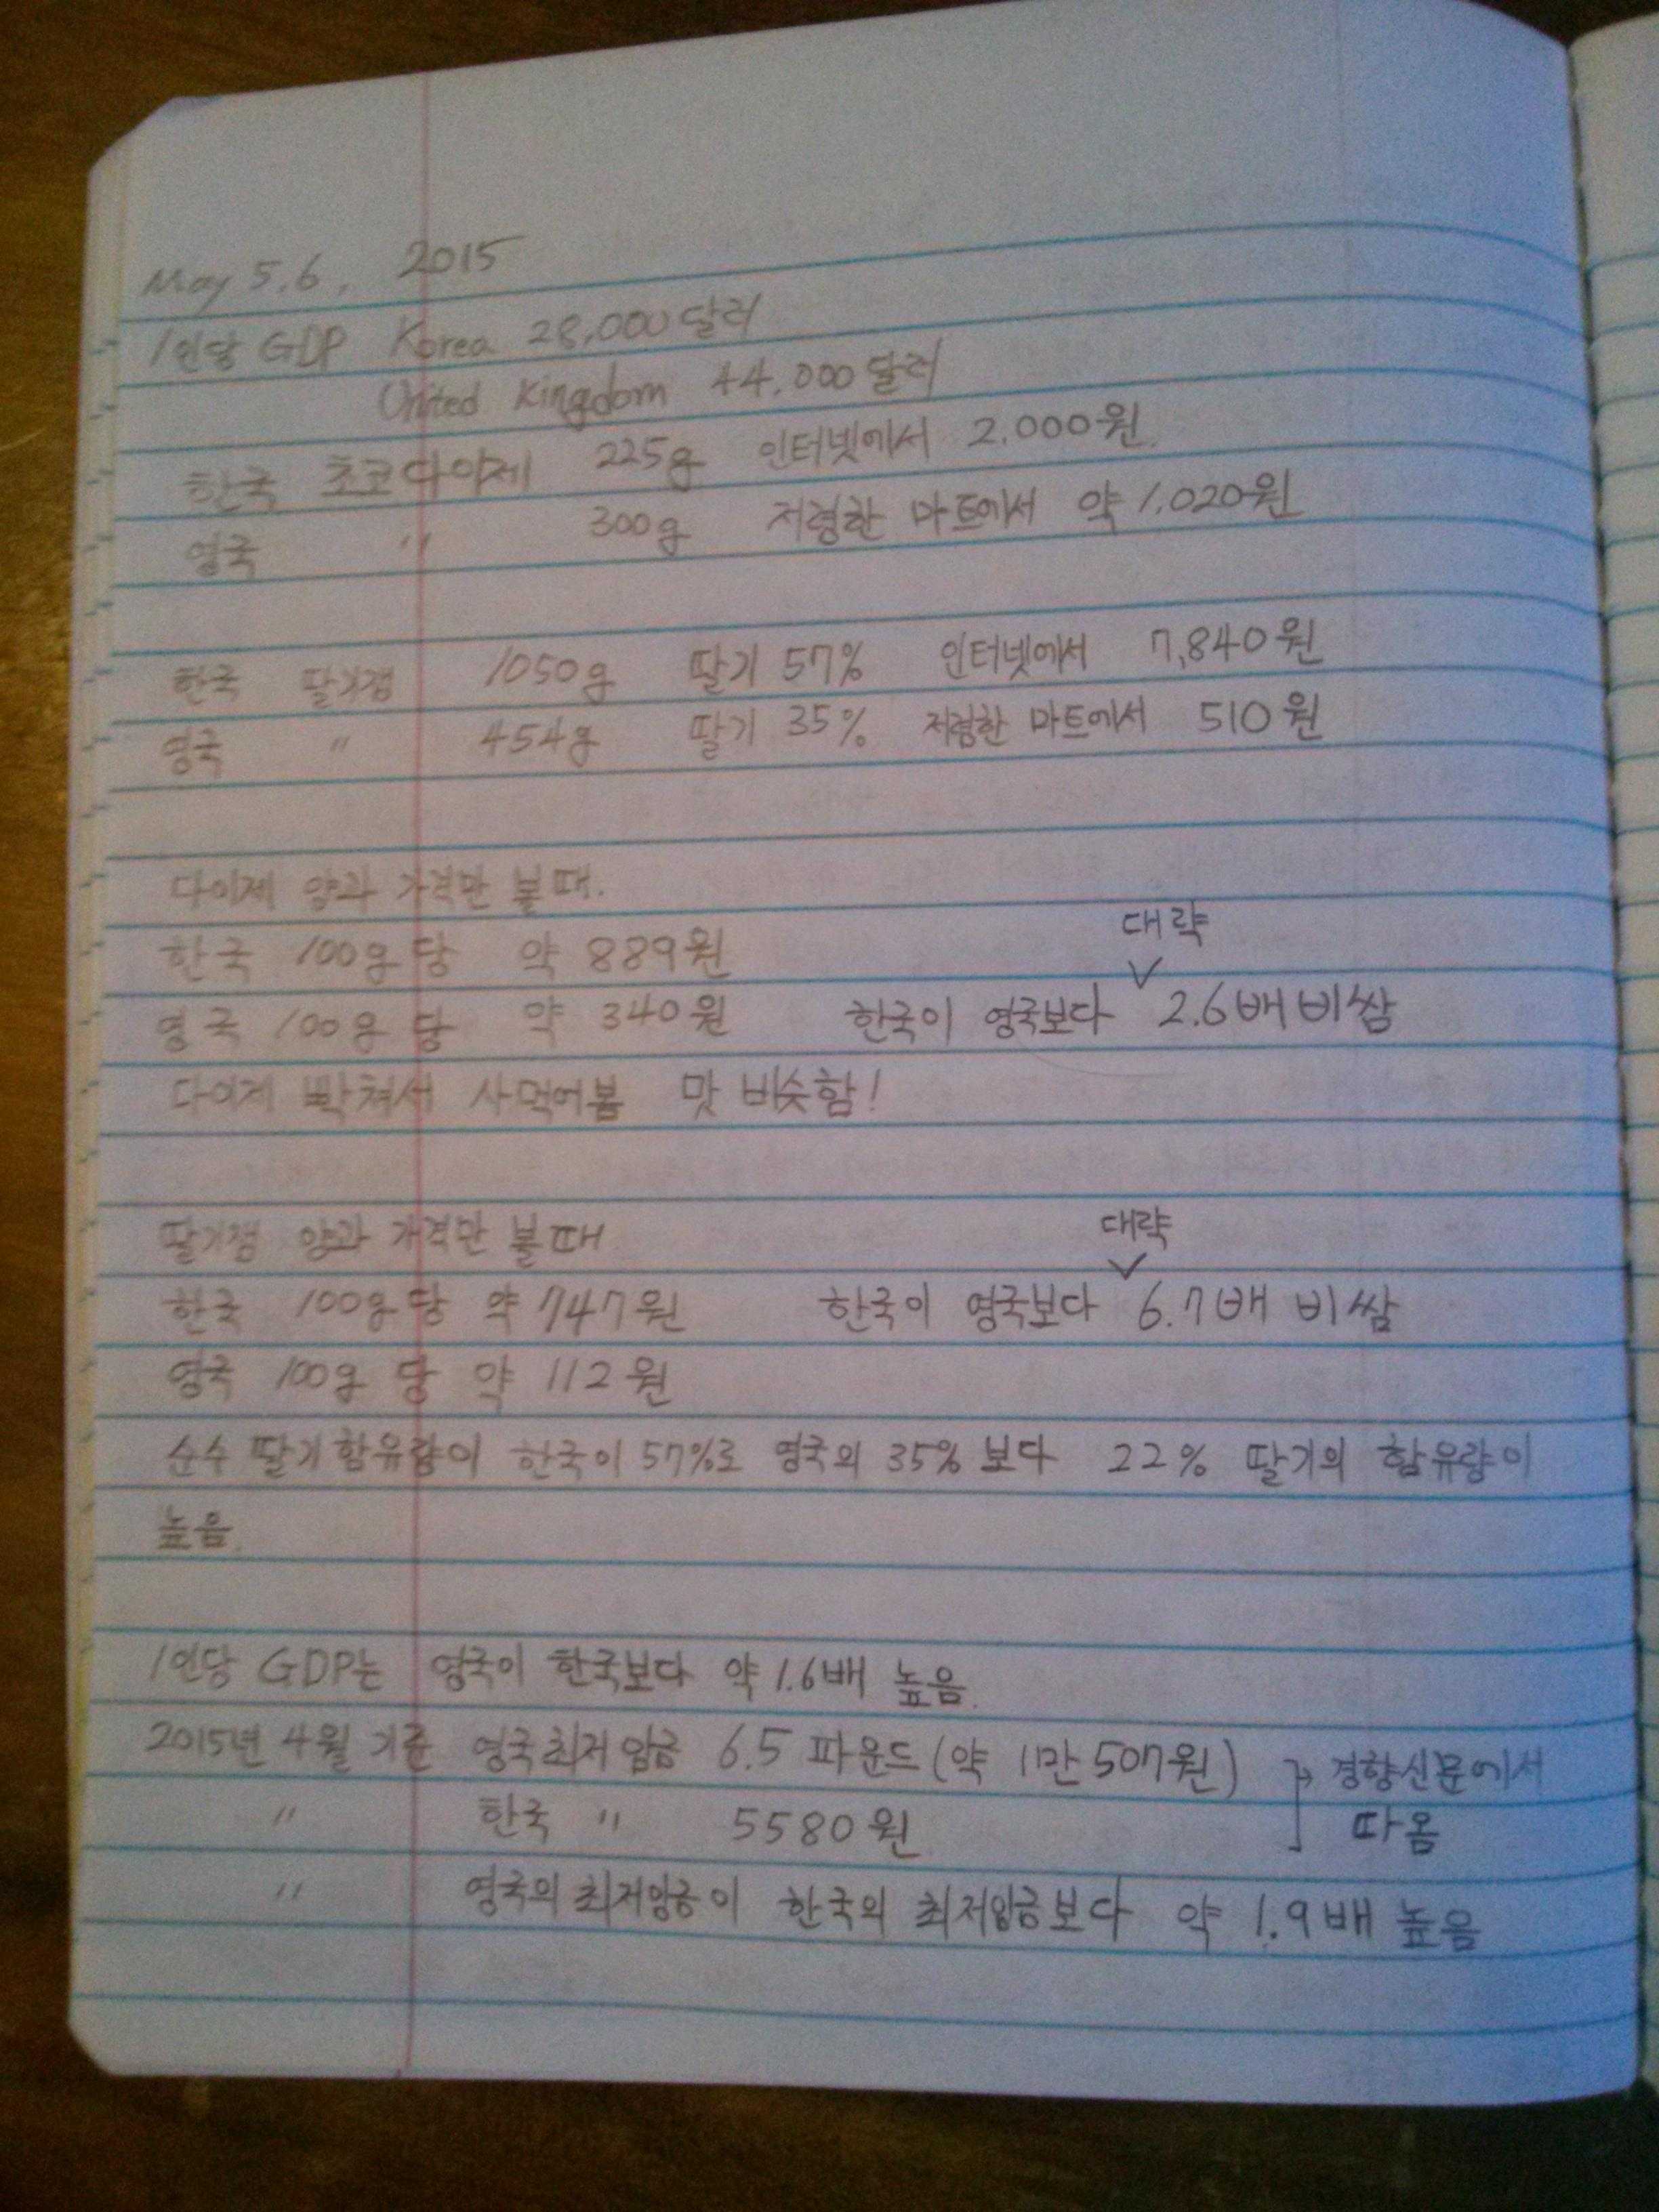 May 5.6. 2015
1인당 GDP Korea 28,000달러
United Kingdom 44,000달러
한국 초코다이제 225g 인터넷에서 2,000원
영국 〃 300g 저렴한 마트에서 약 1,020원
한국 딸기잼 1050g 딸기 57% 인터넷에서 7,840원
영국 〃 454g 딸기 35% 저렴한 마트에서 510원
다이제 양과 가격만 볼때.
대략
한국 100g당 약 889원
영국 100g당 약 340원 한국이 영국보다 ∨ 2.6배 비쌈
다이제 빡쳐서 사먹어봄 맛 비슷함!
딸기잼 양과 가격만 볼때
대략
한국 100g당 약 747원 한국이 영국보다 ∨ 6.7배 비쌈
영국 100g당 약 112원
순수 딸기함유량이 한국이 57%로 영국의 35%보다 22% 딸기의 함유량이
높음.
1인당 GDP는 영국이 한국보다 약 1.6배 높음.
2015년 4월 기준 영국최저임금 6.5 파운드(약 1만 507원) → 경향신문에서
〃 한국 〃 5580원 따옴
〃 영국의 최저임금이 한국의 최저임금보다 약 1.9배 높음